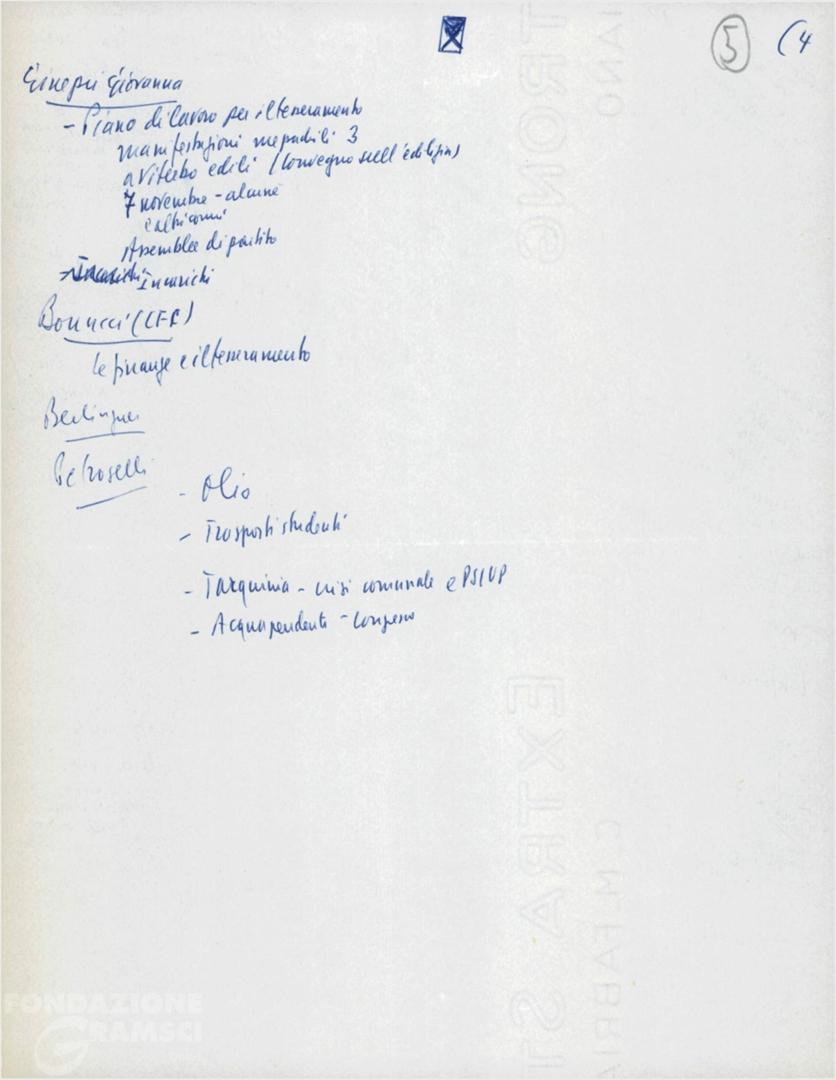 5 (4
Ginepri Giovanna
- Piano di lavoro per il tesseramento
manifestazioni 3
a Viterbo edili (Convegno sull'edilizia)
7 novembre - alcune
e altri comuni
Assemblee di partito
- Incarichi Incarichi
Bonucci (CFC)
le finanze e il tesseramento
Berlinguer
Petroselli
- Olio
- Trasporti studenti
- Tarquinia - crisi comunale e PSIUP
- Acquapendente - Congresso
TRONG
IANO
EXTRA ST
C. M. FABRIA
FONDAZIONE
GRAMSCI